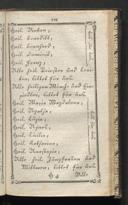 Heil. Anton,
Heil. Benedikt,
Heil. Bernhard,
Heil. Dominik,
Heil. Franz,
Alle heil. Priester und Levi-
ten, bittet für uns.
Alle heiligen Mönche und Ein-
siedler, bittet für uns.
Heil. Maria Magdalena,
Heil. Agatha,
Heil. Luzia,
Heil. Agnes,
Heil. Cäcilia,
Heil. Katharina,
Heil. Anastasia,
Alle heil. Jungfrauen und
Wittwen, bittet für uns.
Alle